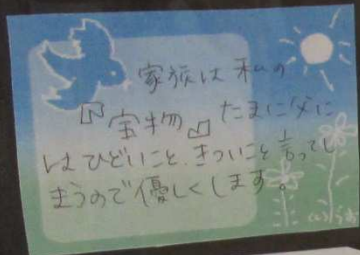 家族は私の
『宝物』たまに父に
はひどいこと、きついこと言ってし
まうので優しくします。